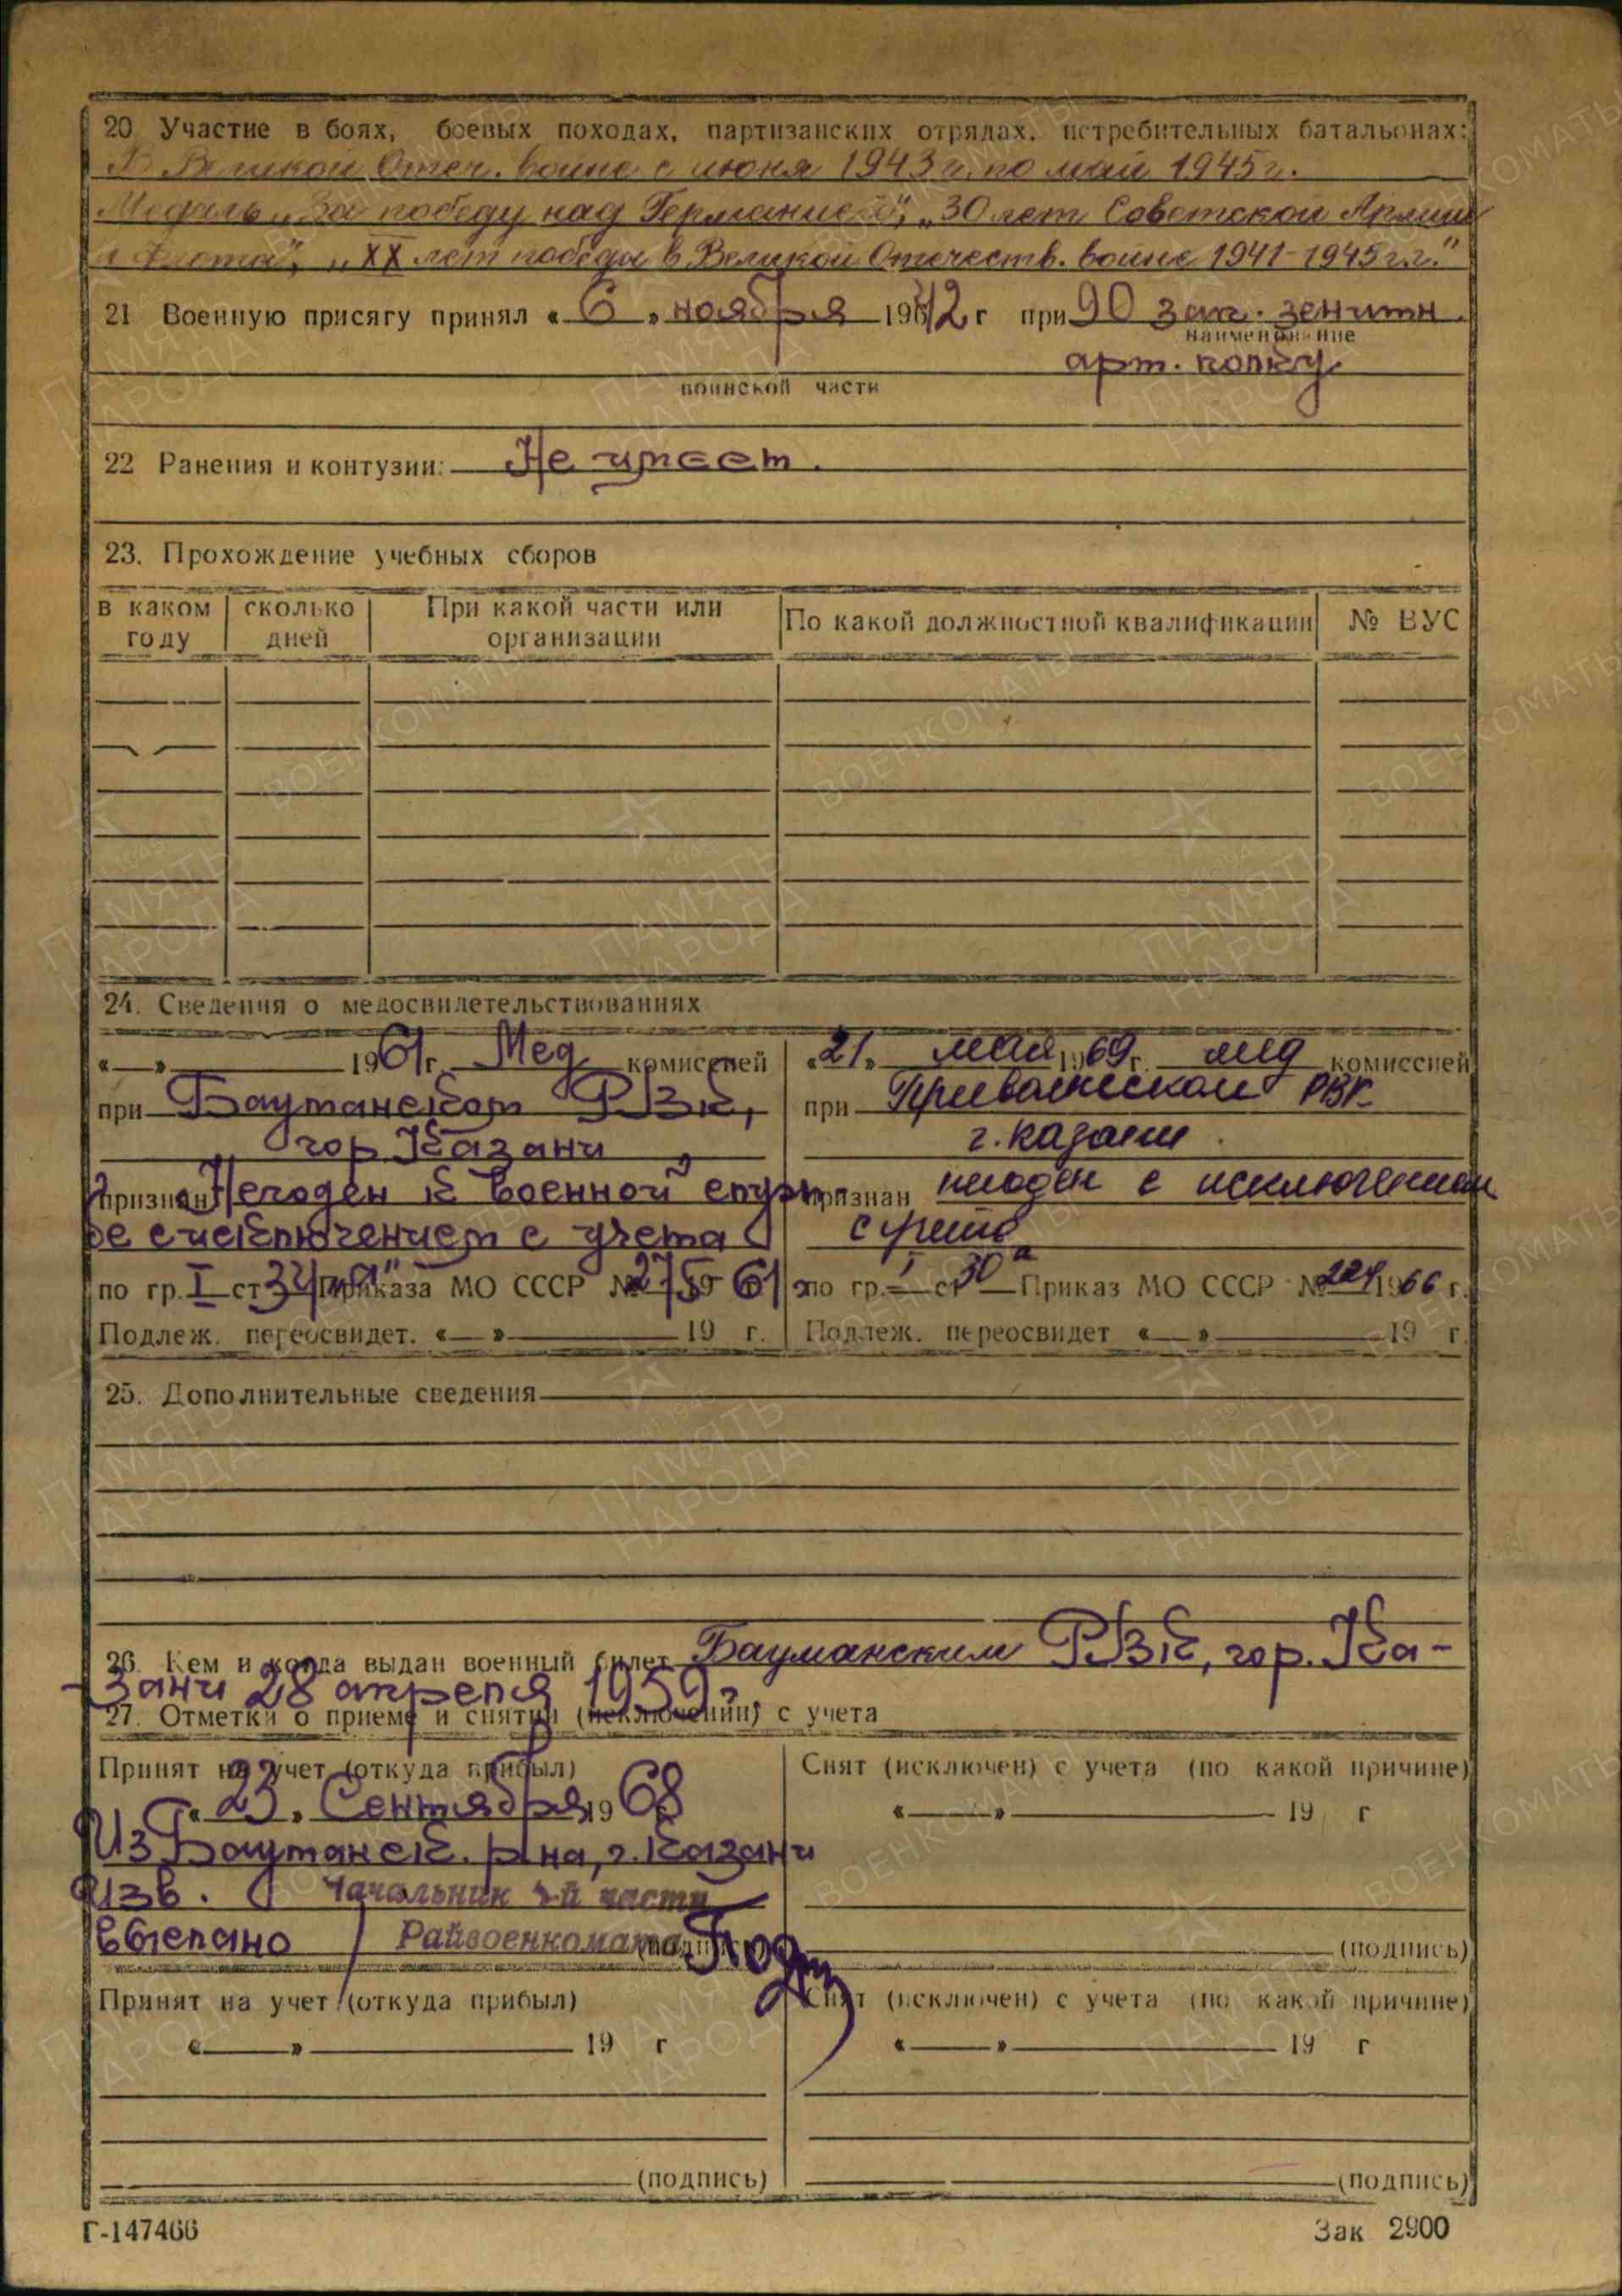 20 Участие в боях, боевых походах, партизанских отрядах, истребительных батальонах:
В Великой Отеч. войне с июня 1943 г. по май 1945 г.
Медаль „За победу над Германией", „30 лет Советской Армии
и Флота", „XX лет победы в Великой Отечеств. войне 1941-1945 г.г."
21 Военную присягу принял « 6 » ноября 1942 г при 90 зап. зенитн.
наименование
арт. полку
воинской части
22 Ранения и контузии: Не имеет.
23. Прохождение учебных сборов
в каком году | сколько дней | При какой части или организации | По какой должностной квалификации | № ВУС
24. Сведения о медосвидетельствованиях
«—» 1961 г. Мед комиссией
при Бауманском РВК,
гор Казани
признан Негоден к военной служ-
бе с исключением с учета
по гр. I ст 34 Приказа МО СССР № 275 61
Подлеж. переосвидет. «—» 19 г.
«21» мая 1969 г. мед комиссией
при Приволжском РВК
г. Казани.
признан негоден с исключением
с учета
по гр. I ст 30а Приказ МО СССР № 1966 г.
Подлеж. переосвидет «—» 19 г.
25. Дополнительные сведения
26. Кем и когда выдан военный билет Бауманским РВК, гор. Ка-
зани 28 апреля 1959 г.
27. Отметки о приеме и снятии (исключении) с учета
Принят на учет (откуда прибыл)
«23» Сентября 1968
Из Бауманск. р-на, г. Казани
Изв. Начальник части
выслано Райвоенкомата
Снят (исключен) с учета (по какой причине)
«—» 19 г
(подпись)
Принят на учет (откуда прибыл)
«—» 19 г
(подпись)
Снят (исключен) с учета (по какой причине)
«—» 19 г
(подпись)
Г-147466
Зак 2900
ПАМЯТЬ НАРОДА
ВОЕНКОМАТЫ